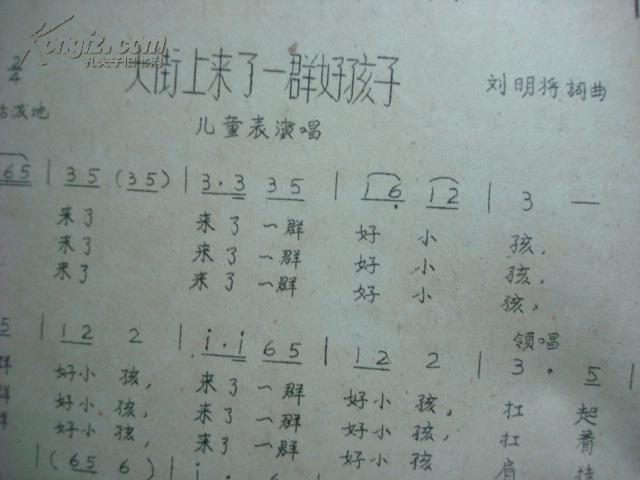 Kongfz.com
孔夫子旧书网
大街上来了一群好孩子
2/4
刘明将 詞曲
活泼地
儿童表演唱
65 | 35 (35) | 3·3 35 | 16 12 | 3 —
来了 来了一群 好 小 孩,
来了 来了一群 好 小 孩,
来了 来了一群 好 小 孩,
领唱
5 | 12 2 | i·i 65 | 12 2 | 3· 5 |
群 好小 孩, 来了 一群 好小 孩, 扛 起
群 好小 孩, 来了 一群 好小 孩, 扛 着
群 好小 孩, 来了 一群 好小 孩 肩 挂
| (65 6) | i· 6